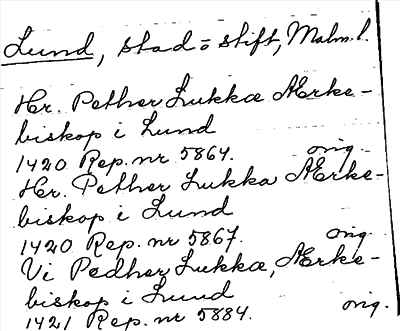 Lund, stad o stift, Malm. l.
Hr. Pether Lukkæ Ærke-
biskop i Lund
1420 Rep. nr 5864. orig.
Hr. Pether Lukka Ærke-
biskop i Lund
1420 Rep. nr 5867. orig.
Vi Pedher Lukkæ, Ærke-
biskop i Lund
1421 Rep. nr 5884. orig.